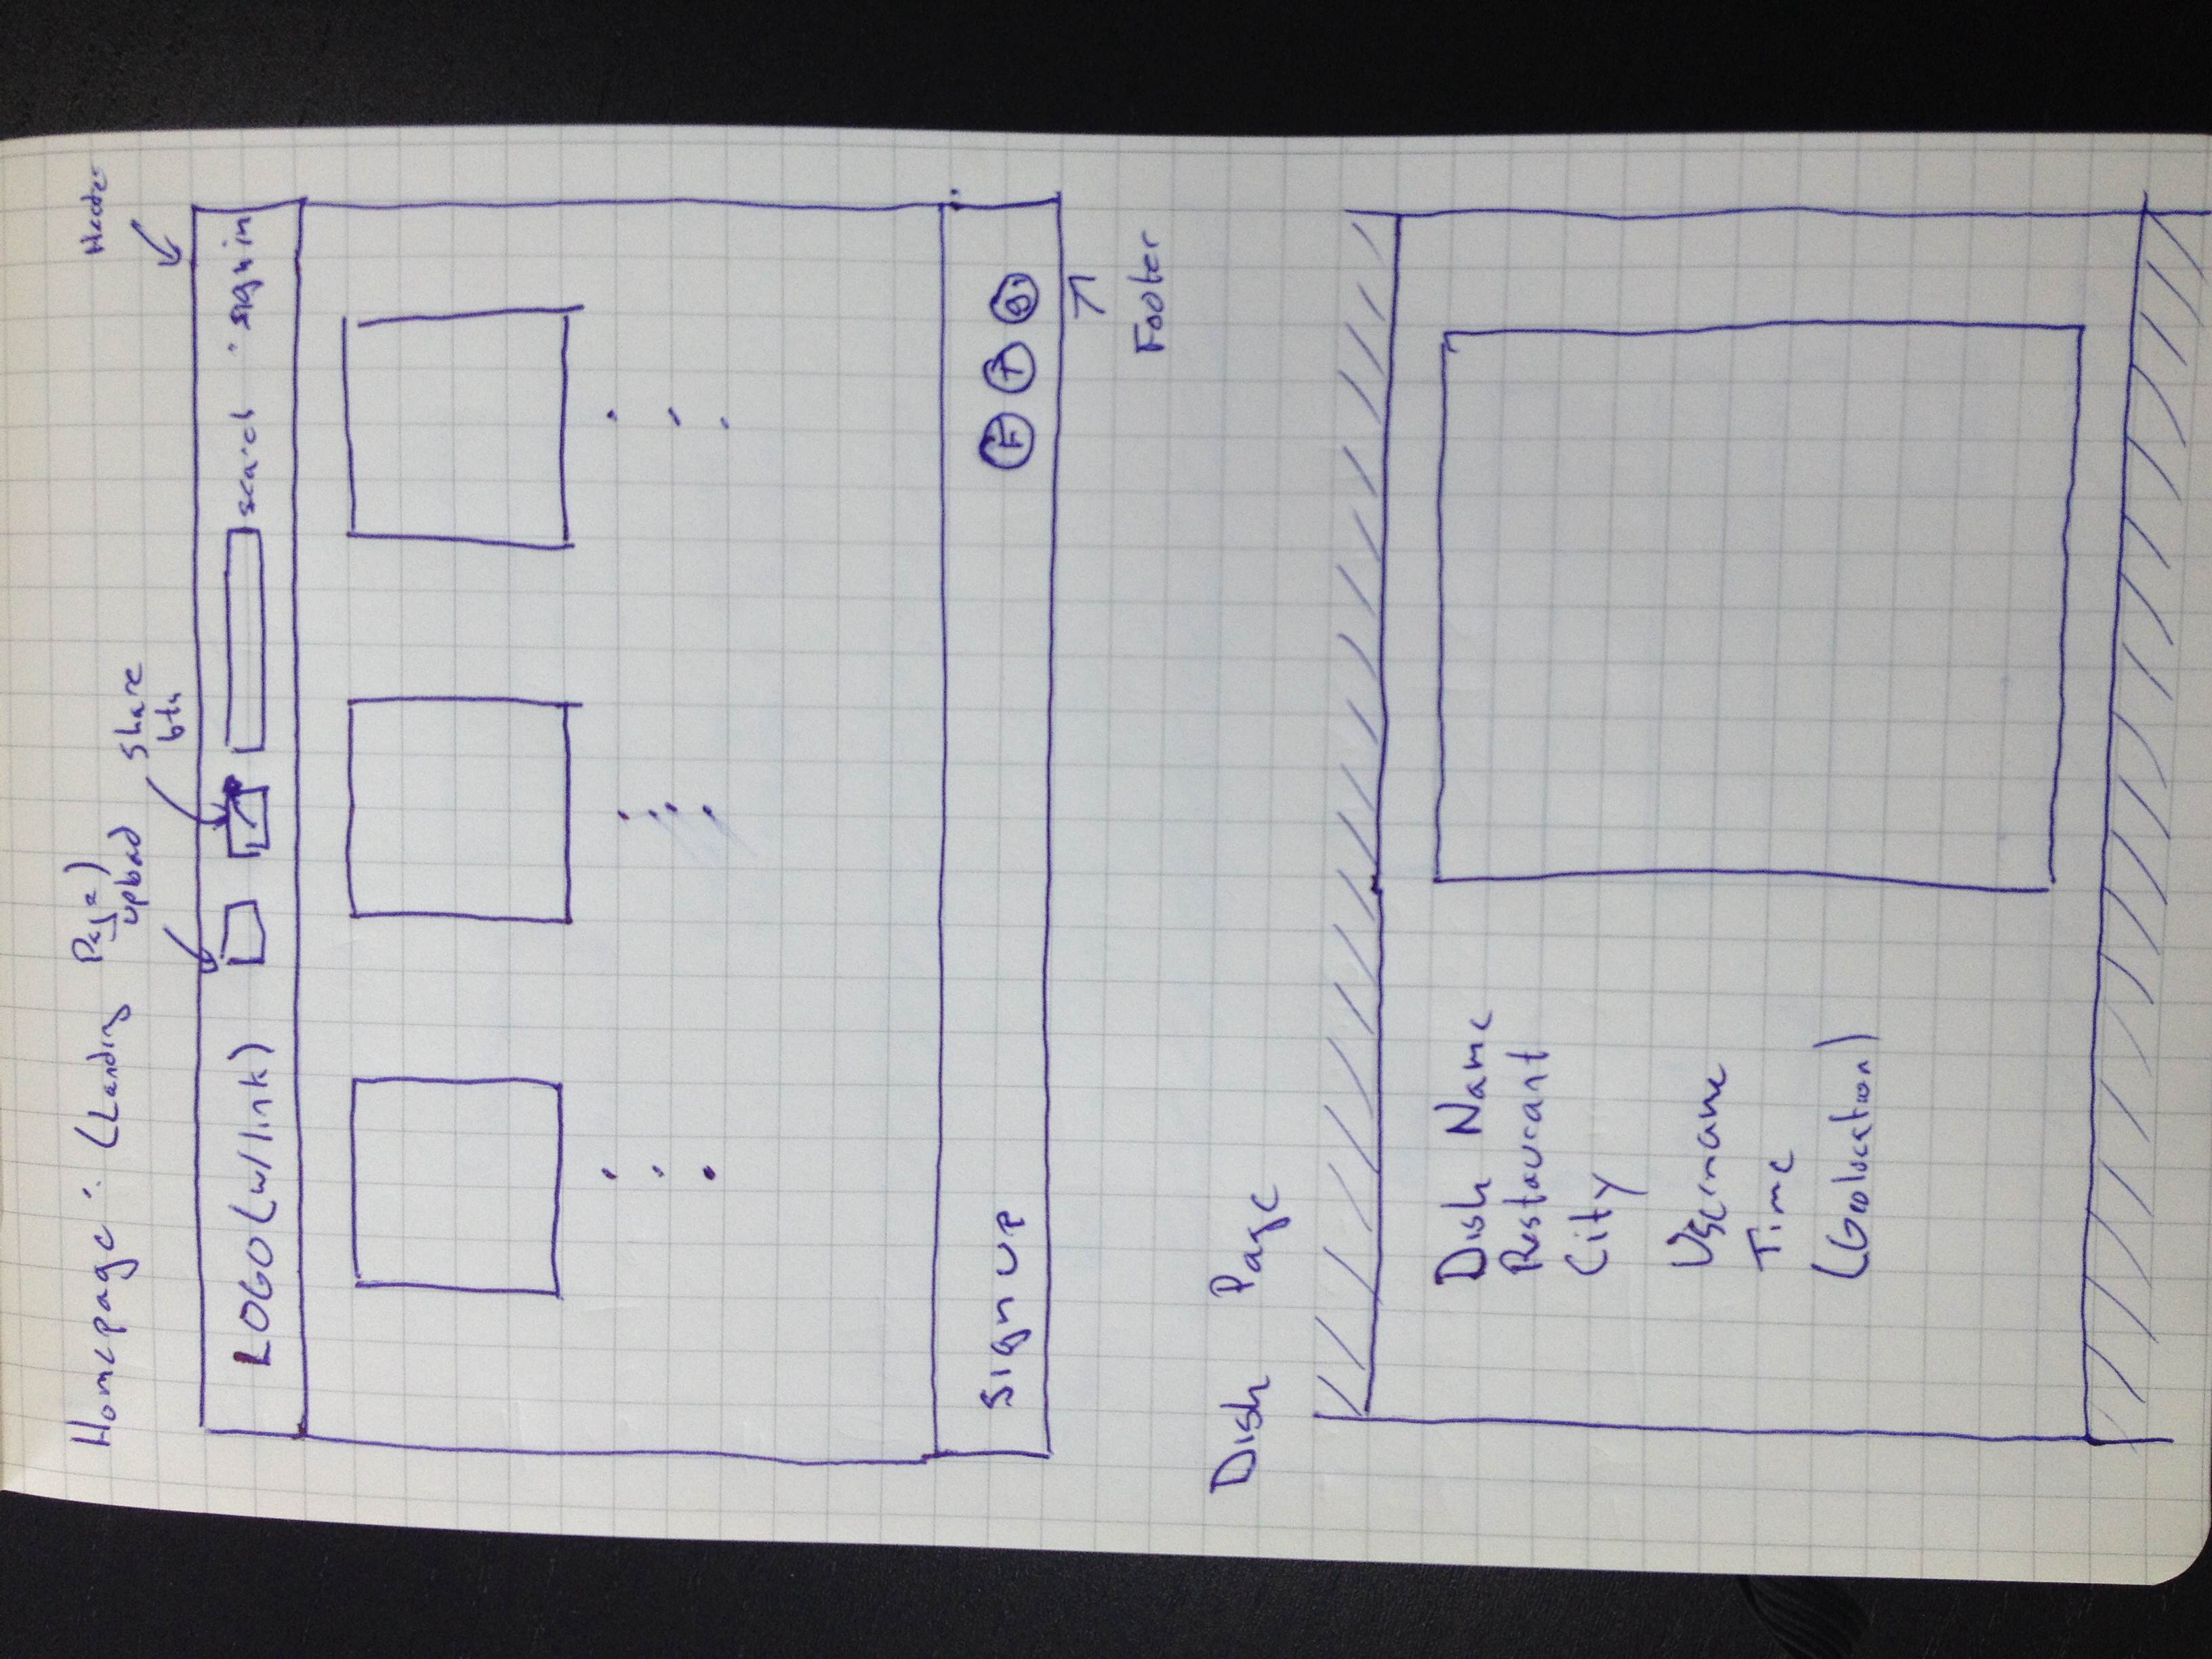 Homepage: (Landing Page)
Header
upload
share
btn
LOGO (w/link)
search
sign in
sign up
F
T
g+
Footer
Dish Page
Dish Name
Restaurant
City
Username
Time
(Geolocation)